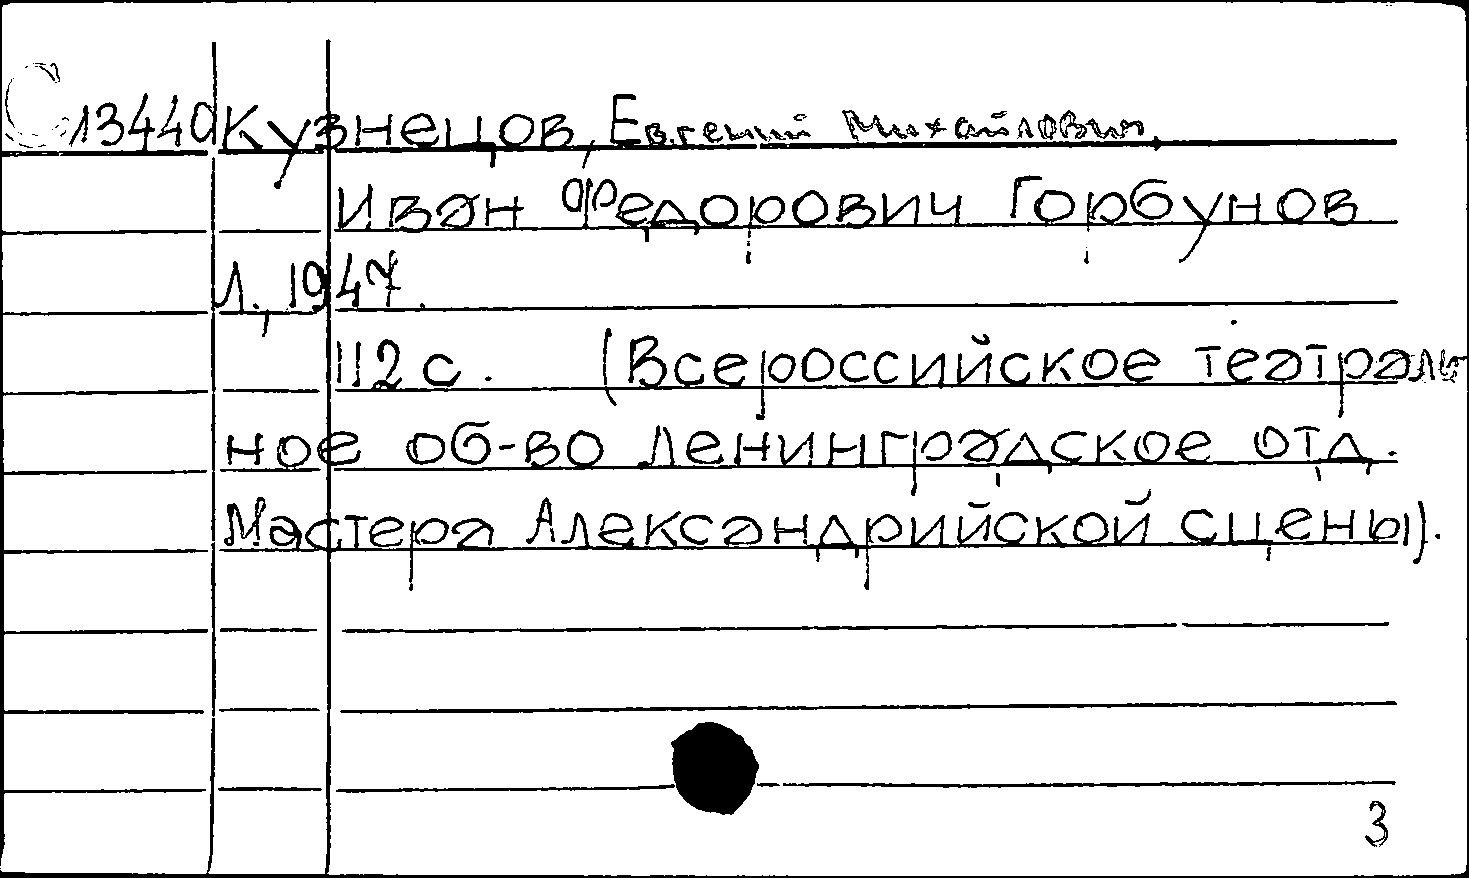 С13440 Кузнецов, Евгений Михайлович.
Иван Федорович Горбунов
Л., 1947.
112 с. (Всероссийское театраль
ное об-во Ленинградское отд.
Мастера Александрийской сцены).
3